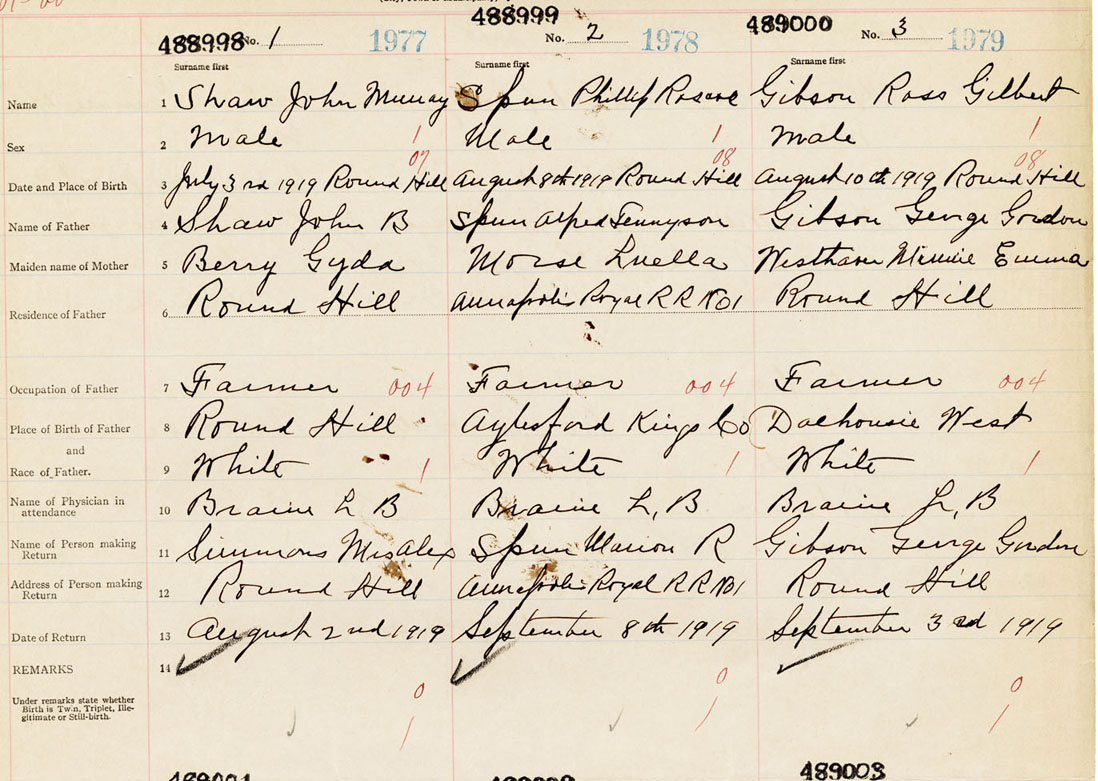 488998 No. 1 1977 488999 No. 2 1978 489000 No. 3 1979
Surname first Surname first Surname first
Name 1 Shaw John Murray Spurr Phillip Roscoe Gibson Ross Gilbert
Sex 2 Male 1 Male 1 Male 1
07 08 08
Date and Place of Birth 3 July 3rd 1919 Round Hill August 8th 1919 Round Hill August 10th 1919 Round Hill
Name of Father 4 Shaw John B Spurr Alfred Tennyson Gibson George Gordon
Maiden name of Mother 5 Berry Gyda Morse Luella Minnie Emma
Residence of Father 6 Round Hill Annapolis Royal R R No 1 Round Hill
Occupation of Father 7 Farmer 004 Farmer 004 Farmer 004
Place of Birth of Father 8 Round Hill Aylesford Kings Co Dalhousie West
and
Race of Father. 9 White 1 White 1 White 1
Name of Physician in
attendance 10 Braine L B Braine L, B Braine L, B
Name of Person making
Return 11 Simmons Mrs Alex Spurr Marion R Gibson George Gordon
Address of Person making
Return 12 Round Hill Annapolis Royal R R No 1 Round Hill
Date of Return 13 August 2nd 1919 September 8th 1919 September 3rd 1919
REMARKS 14
0 0 0
Under remarks state whether
Birth is Twin, Triplet, Ille-
gitimate or Still-birth.
1 1 1
489003